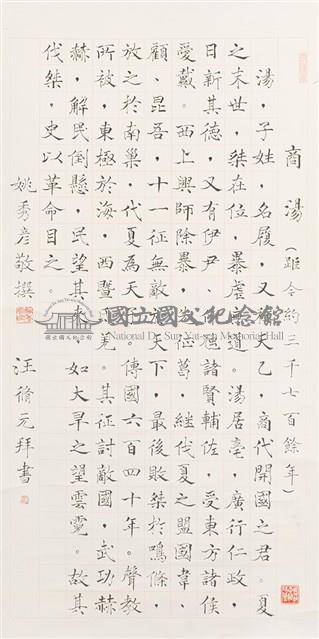 商湯（距今約三千七百餘年）
湯，子姓，名履，又稱天乙，商代開國之君。夏
之末世，桀在位，暴虐無道。湯居亳，廣行仁政，
日新其德，又有伊尹、仲虺諸賢輔佐，受東方諸侯
愛戴。西上興師除暴，伐葛，繼伐夏之盟國韋、
顧、昆吾，十一征無敵於天下，最後敗桀於鳴條，
放之於南巢，代夏為天子，傳國六百四十年。聲教
所被，東極於海，西暨氐羌。其征討敵國，武功赫
赫，解民倒懸，民望其來，如大旱之望雲霓。故其
伐桀，史以革命目之。
姚秀彥敬撰 汪脩元拜書
國立國父紀念館
National Dr. Sun Yat-sen Memorial Hall